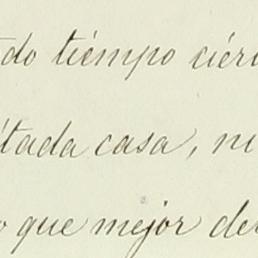 do tiempo cier
itada casa, ni
o que mejor de